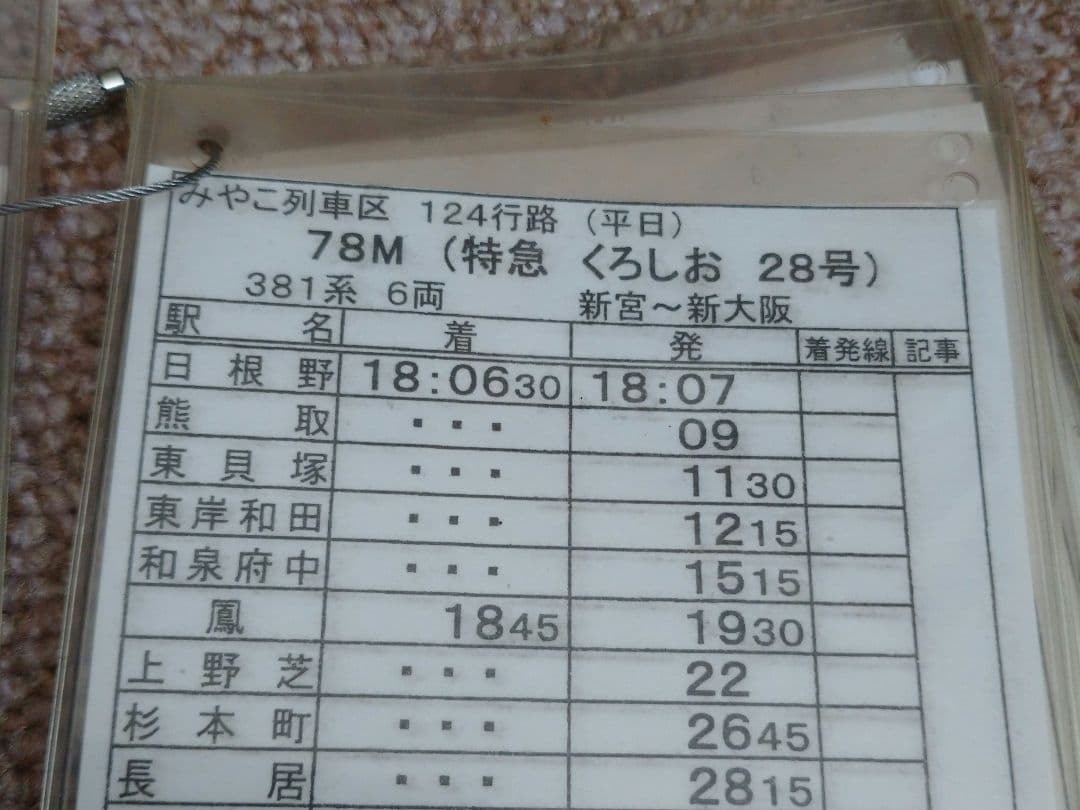 みやこ列車区 124行路 (平日)
78M (特急 くろしお 28号)
381系 6両 新宮～新大阪
駅名 着 発 着発線 記事
日根野 18:0630 18:07
熊取 ・・・ 09
東貝塚 ・・・ 1130
東岸和田 ・・・ 1215
和泉府中 ・・・ 1515
鳳 1845 1930
上野芝 ・・・ 22
杉本町 ・・・ 2645
長居 ・・・ 2815